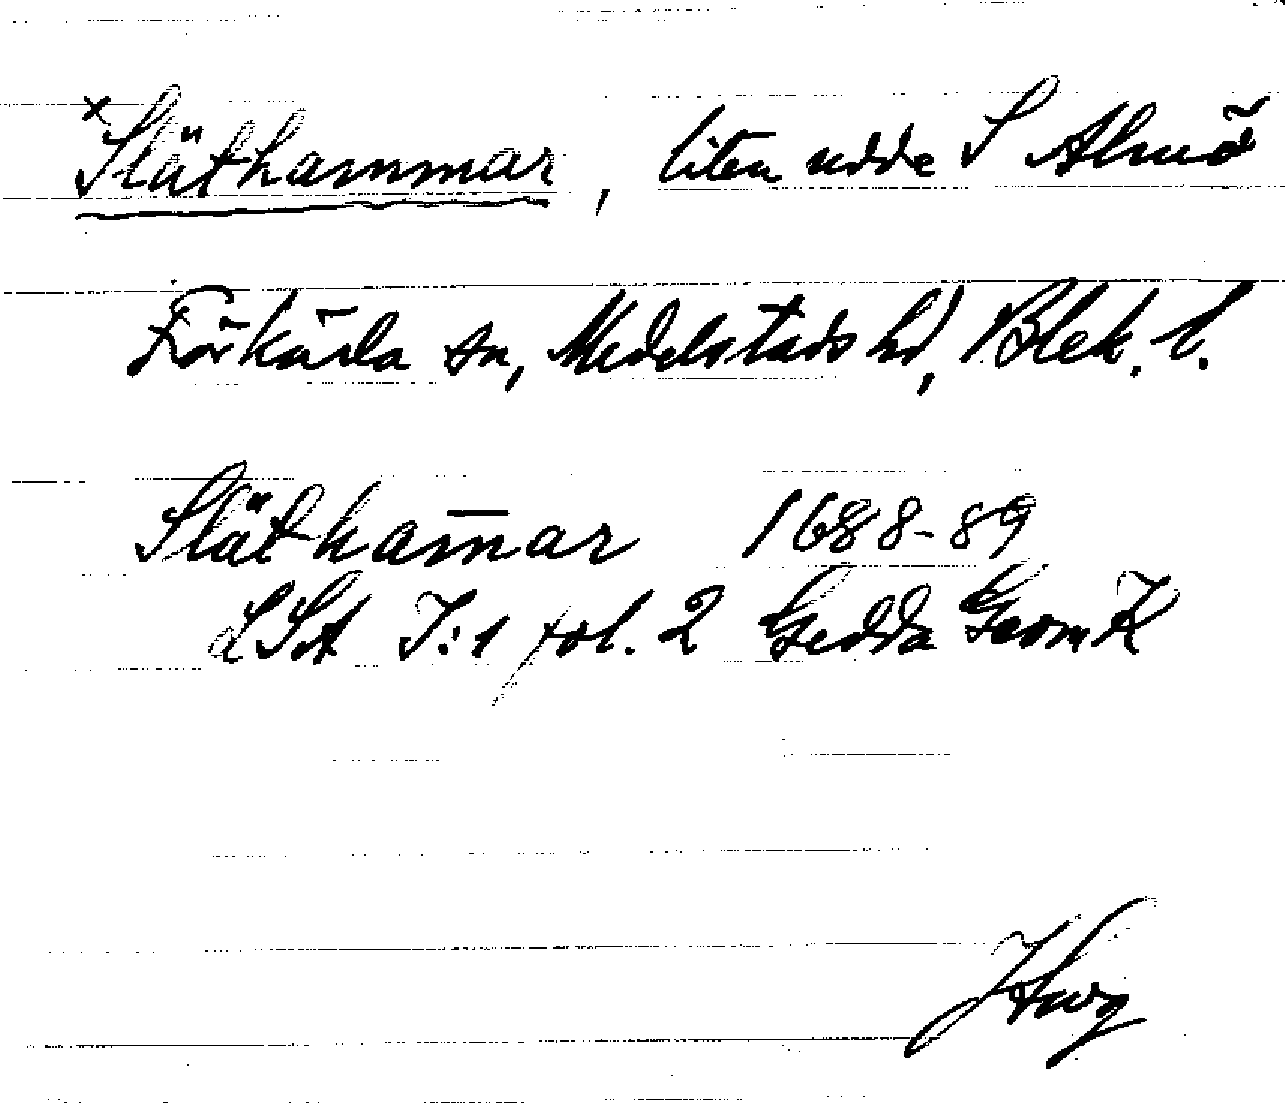 ×Släthammar, liten udde S Almö
Förkärla sn, Medelstads hd, Blek. l.
Slätham̄ar 1688-89
LSA I:1 fol. 2 Gedda GeomK